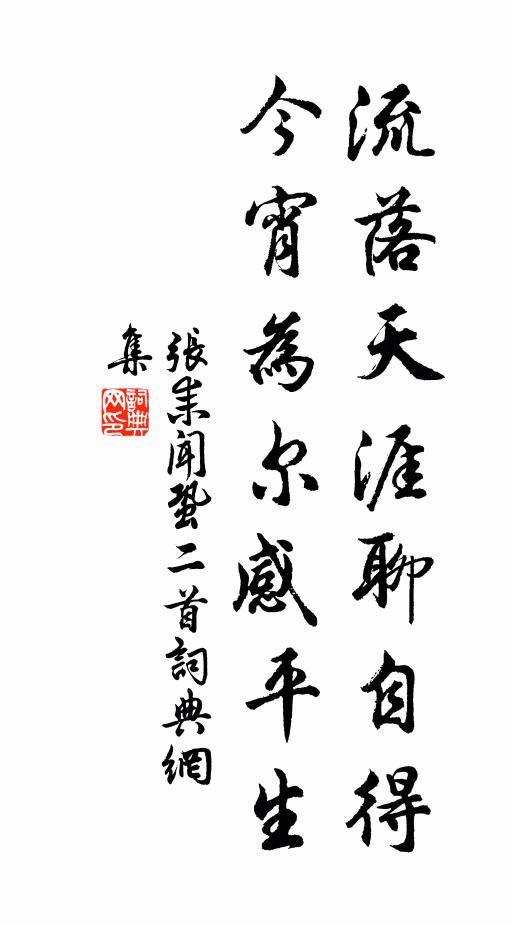 流落天涯聊自得
今宵為尔感平生
張耒聞蛩二首詞典網
集
詞典
网印